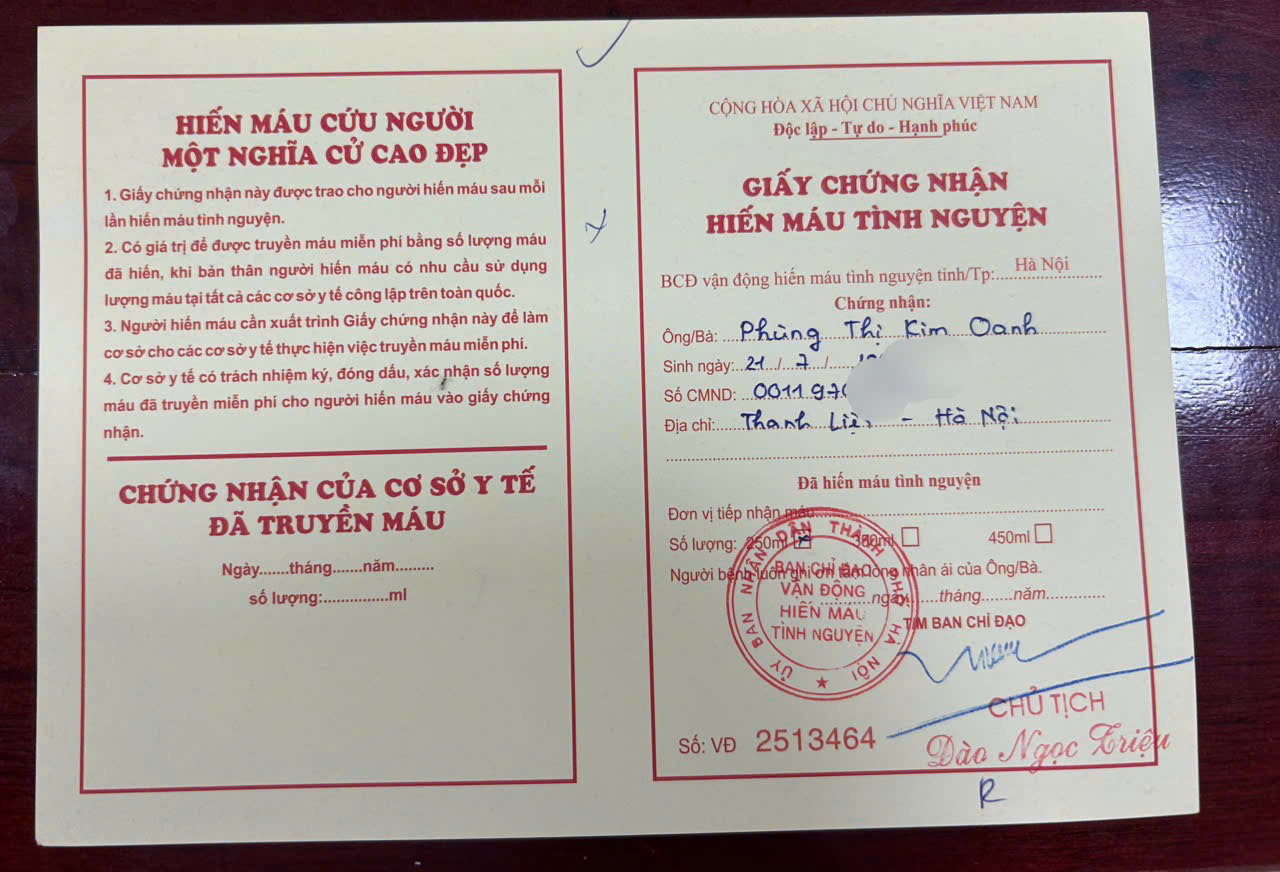 HIẾN MÁU CỨU NGƯỜI
MỘT NGHĨA CỬ CAO ĐẸP
1. Giấy chứng nhận này được trao cho người hiến máu sau mỗi
lần hiến máu tình nguyện.
2. Có giá trị để được truyền máu miễn phí bằng số lượng máu
đã hiến, khi bản thân người hiến máu có nhu cầu sử dụng
lượng máu tại tất cả các cơ sở y tế công lập trên toàn quốc.
3. Người hiến máu cần xuất trình Giấy chứng nhận này để làm
cơ sở cho các cơ sở y tế thực hiện việc truyền máu miễn phí.
4. Cơ sở y tế có trách nhiệm ký, đóng dấu, xác nhận số lượng
máu đã truyền miễn phí cho người hiến máu vào giấy chứng
nhận.
CHỨNG NHẬN CỦA CƠ SỞ Y TẾ
ĐÃ TRUYỀN MÁU
Ngày.......tháng.......năm.........
số lượng:...............ml
CỘNG HÒA XÃ HỘI CHỦ NGHĨA VIỆT NAM
Độc lập - Tự do - Hạnh phúc
GIẤY CHỨNG NHẬN
HIẾN MÁU TÌNH NGUYỆN
BCĐ vận động hiến máu tình nguyện tỉnh/Tp: Hà Nội
Chứng nhận:
Ông/Bà: Phùng Thị Kim Oanh
Sinh ngày: 21 / 7 /
Số CMND: 001197
Địa chỉ: Thanh - Hà Nội
Đã hiến máu tình nguyện
Đơn vị tiếp nhận máu
Số lượng: 250ml 350ml 450ml
Người bệnh luôn ghi ơn tấm lòng nhân ái của Ông/Bà.
ngày.......tháng.......năm
T/M BAN CHỈ ĐẠO
ỦY BAN NHÂN DÂN THÀNH PHỐ HÀ NỘI
BAN CHỈ ĐẠO
VẬN ĐỘNG
HIẾN MÁU
TÌNH NGUYỆN
CHỦ TỊCH
Đào Ngọc Triệu
Số: VĐ 2513464
R